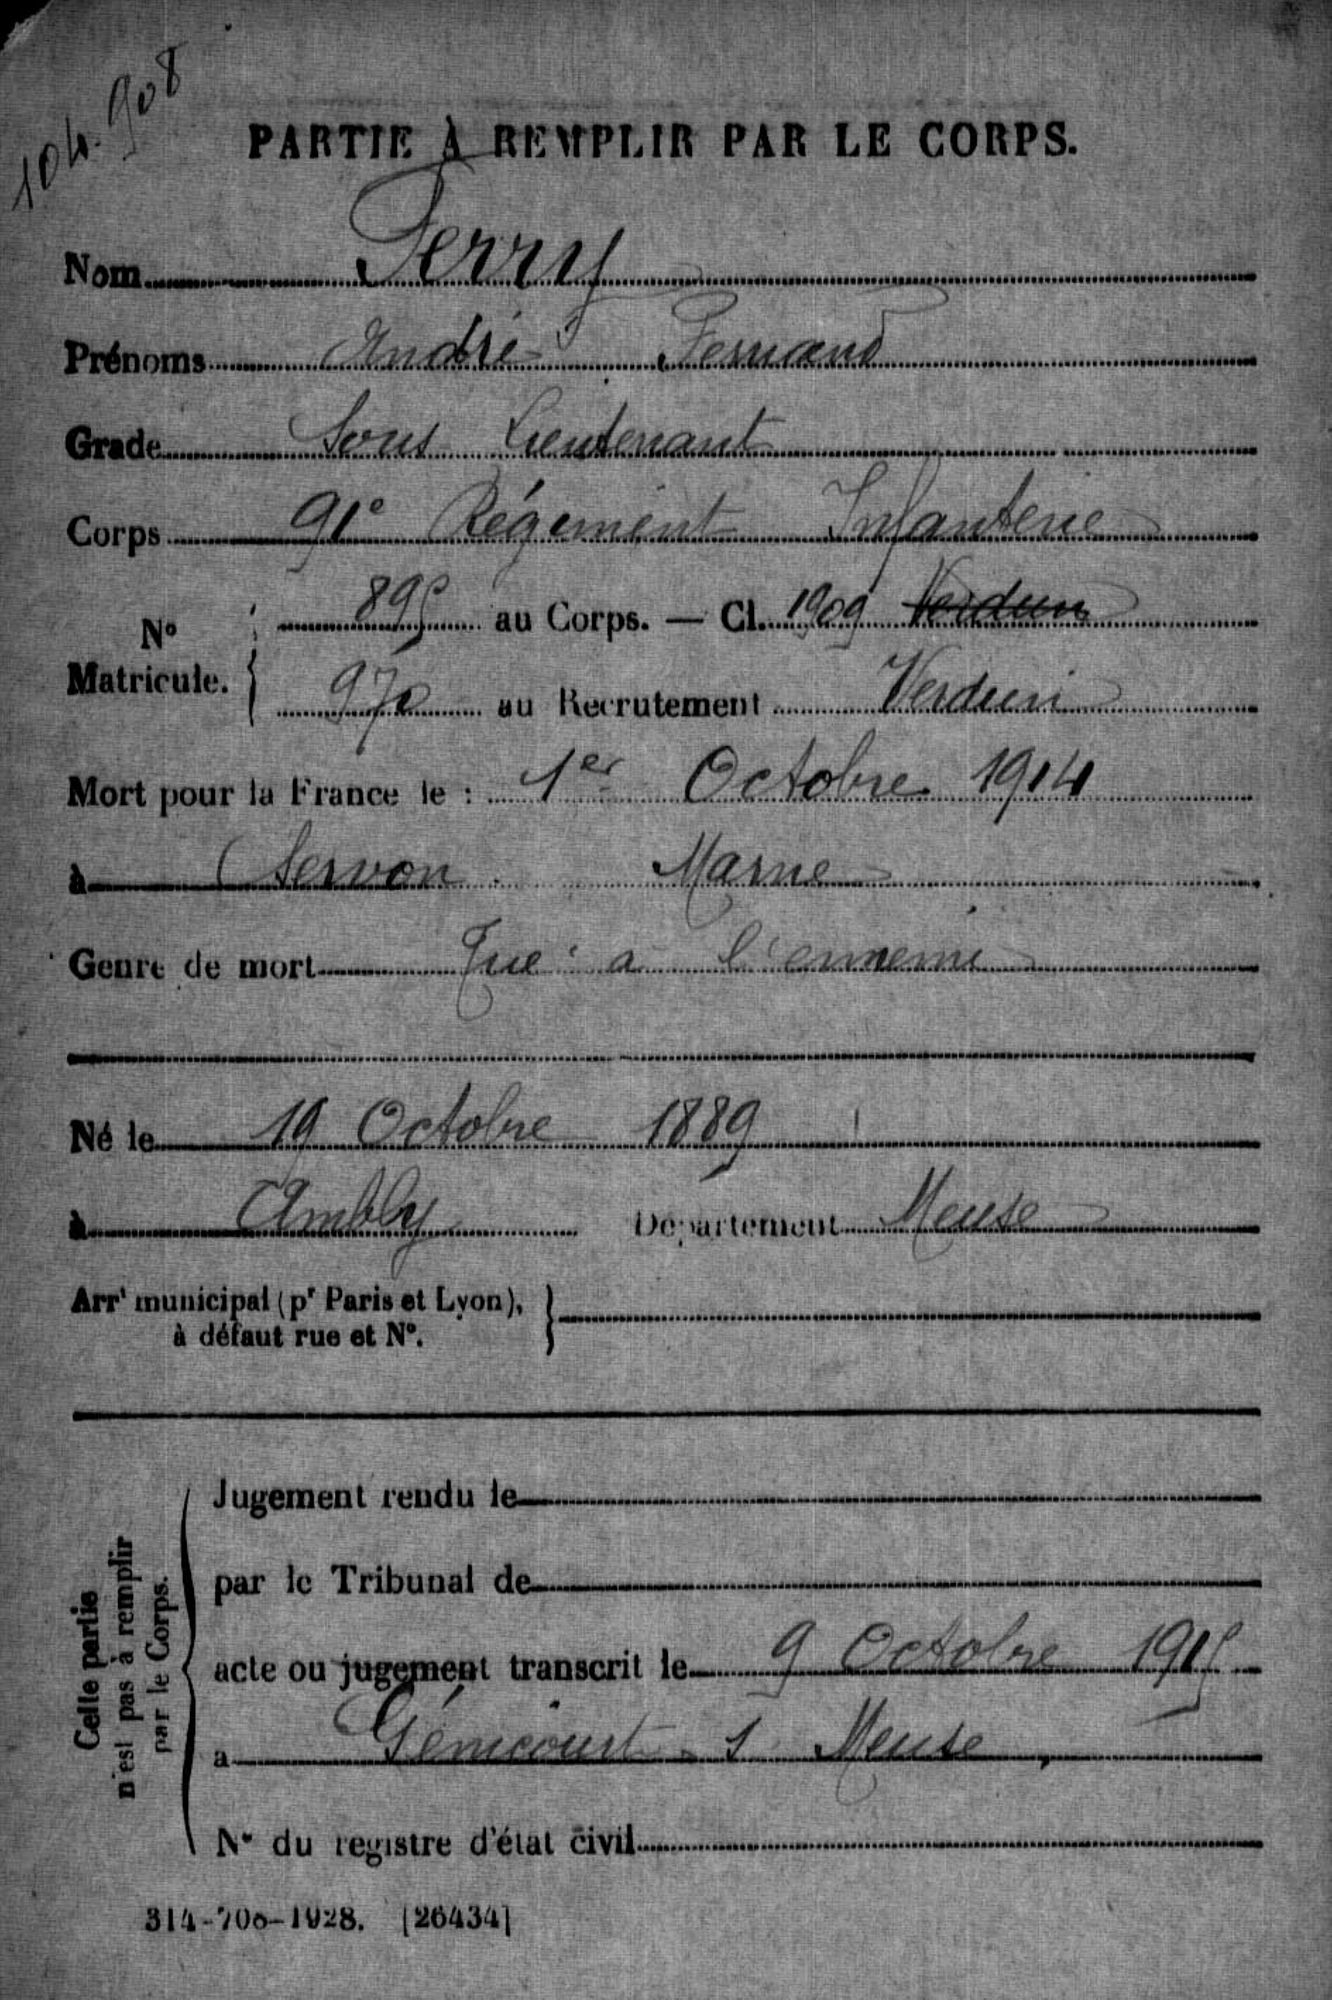 104.908
PARTIE À REMPLIR PAR LE CORPS.
Nom Ferry
Prénoms André Fernand
Grade Sous Lieutenant
Corps 91e Régiment Infanterie
No Matricule. 895 au Corps. — Cl. 1909 Verdun
970 au Recrutement Verdun
Mort pour la France le : 1er Octobre 1914
à Servon Marne
Genre de mort Tué à l'ennemi
Né le 19 Octobre 1889
à Ambly Département Meuse
Arrt municipal (pr Paris et Lyon),
à défaut rue et No.
Cette partie
n'est pas à remplir
par le Corps.
Jugement rendu le
par le Tribunal de
acte ou jugement transcrit le 9 Octobre 1915
à Génicourt s Meuse
No du registre d'état civil
314-708-1928. [26434]